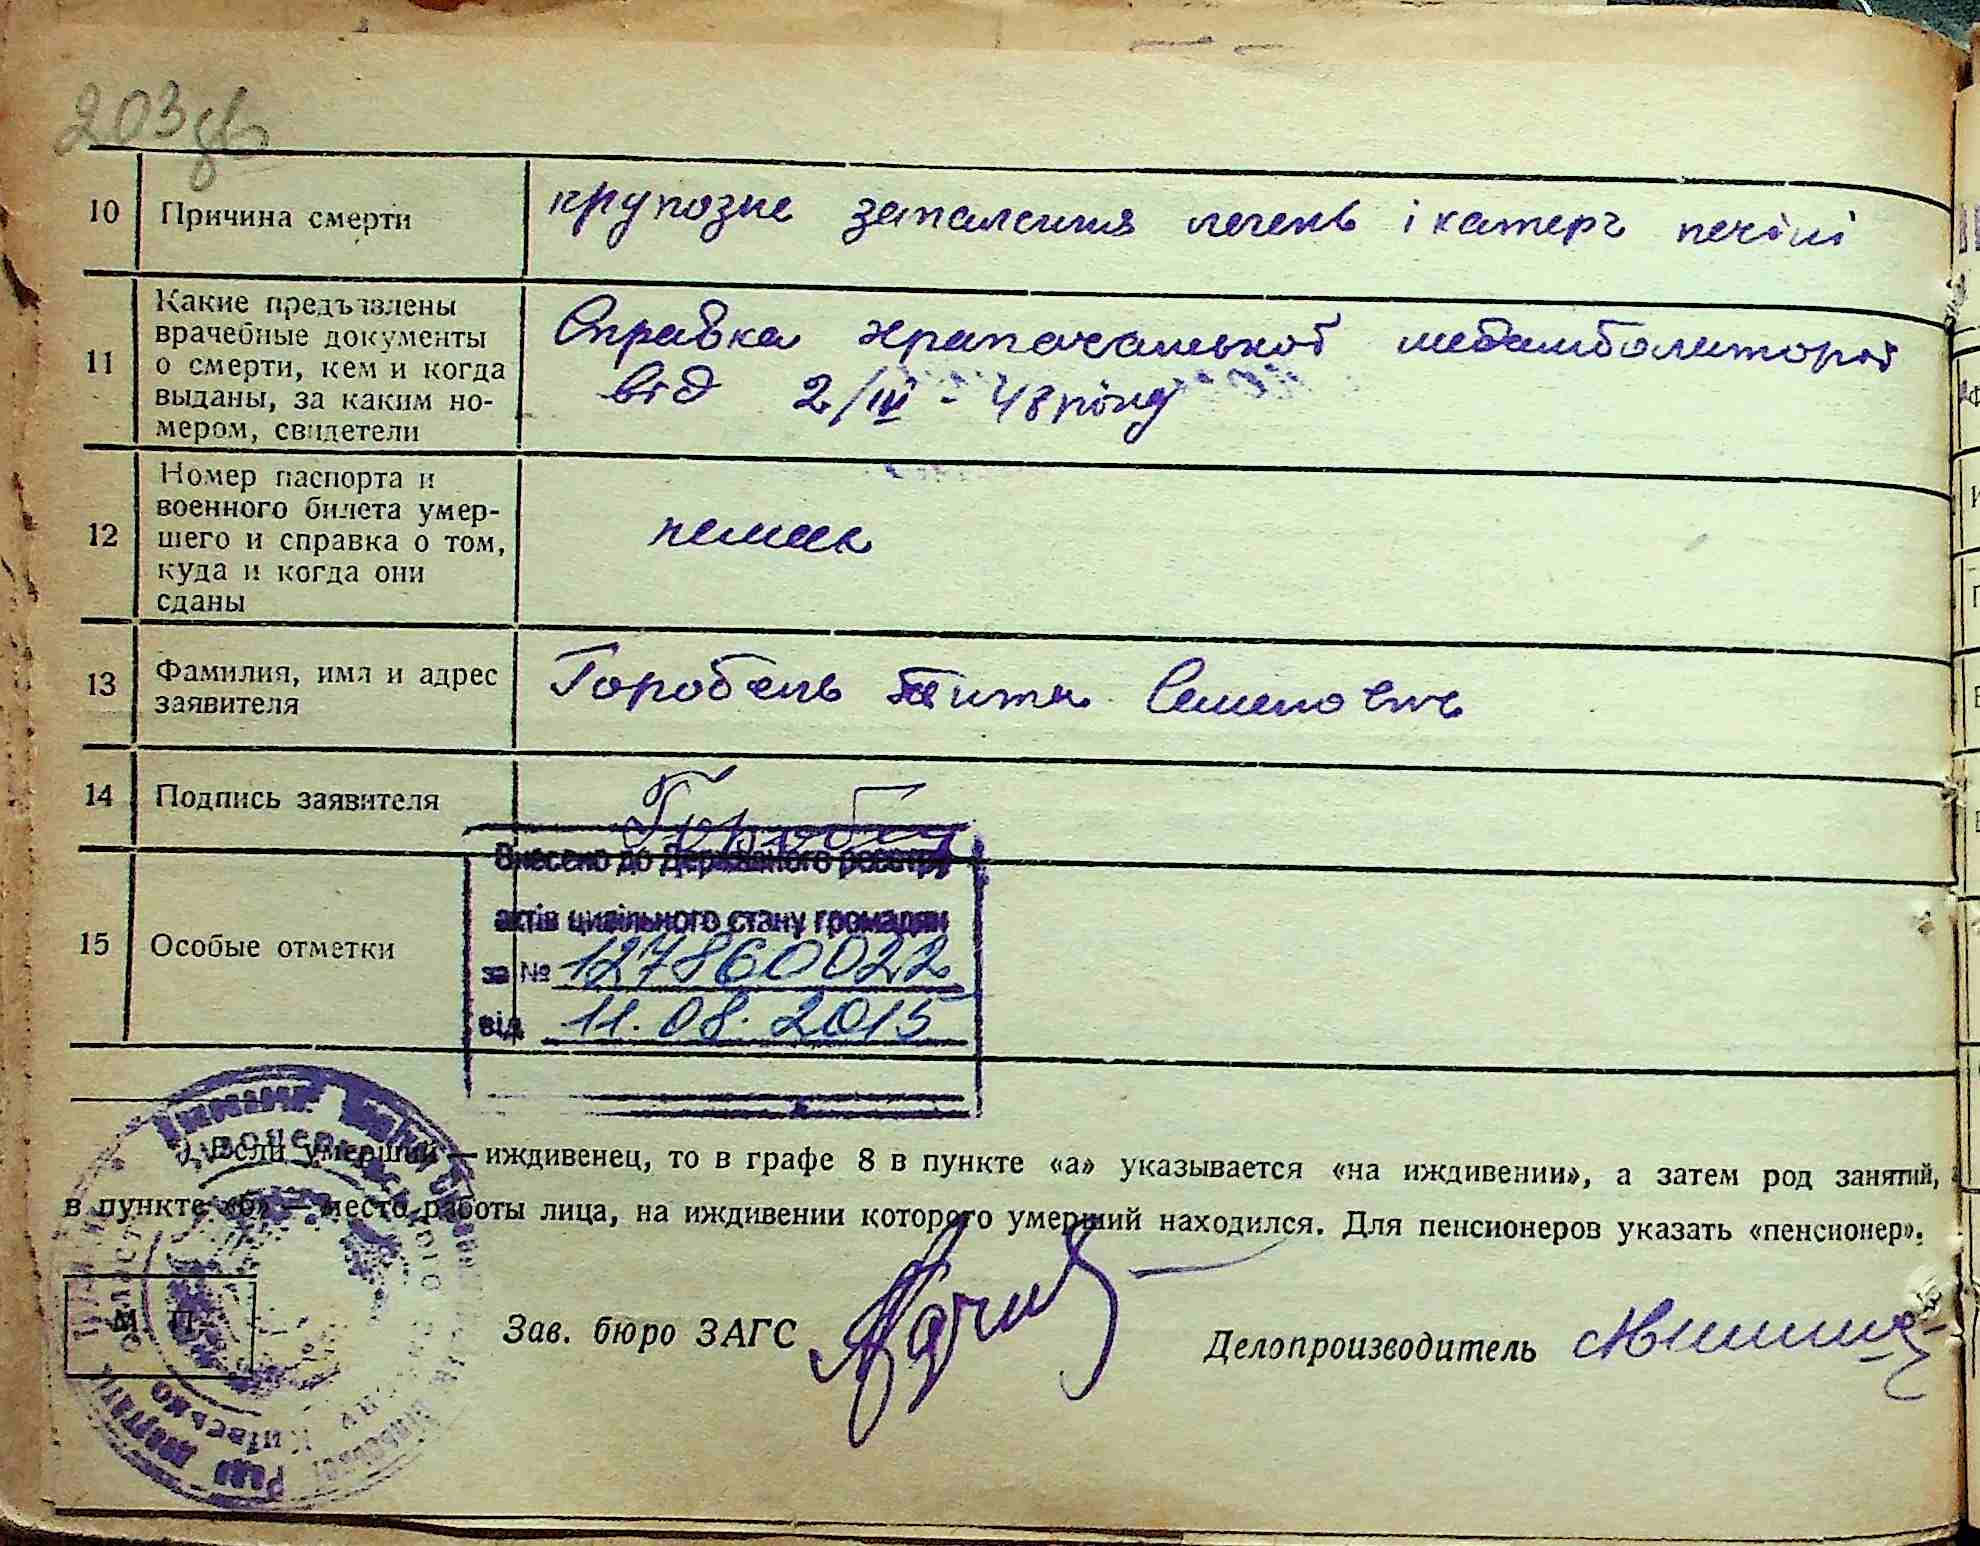 203 зв
10 Причина смерти крупозне запалення легень і катерг печіні
11 Какие предъявлены
врачебные документы
о смерти, кем и когда
выданы, за каким но-
мером, свидетели
Справка храпачанської медамболиторої
від 2/IV - 48 року
12 Номер паспорта и
военного билета умер-
шего и справка о том,
куда и когда они
сданы
немає
13 Фамилия, имя и адрес
заявителя
Горобець Семенович
14 Подпись заявителя Горобец
15 Особые отметки
Внесено до Державного реєстру
актів цивільного стану громадян
за № 127860022
від 11.08.2015
) Если умерший — иждивенец, то в графе 8 в пункте «а» указывается «на иждивении», а затем род занятий,
в пункте «б» — место работы лица, на иждивении которого умерший находился. Для пенсионеров указать «пенсионер».
М П
Зав. бюро ЗАГС
Делопроизводитель